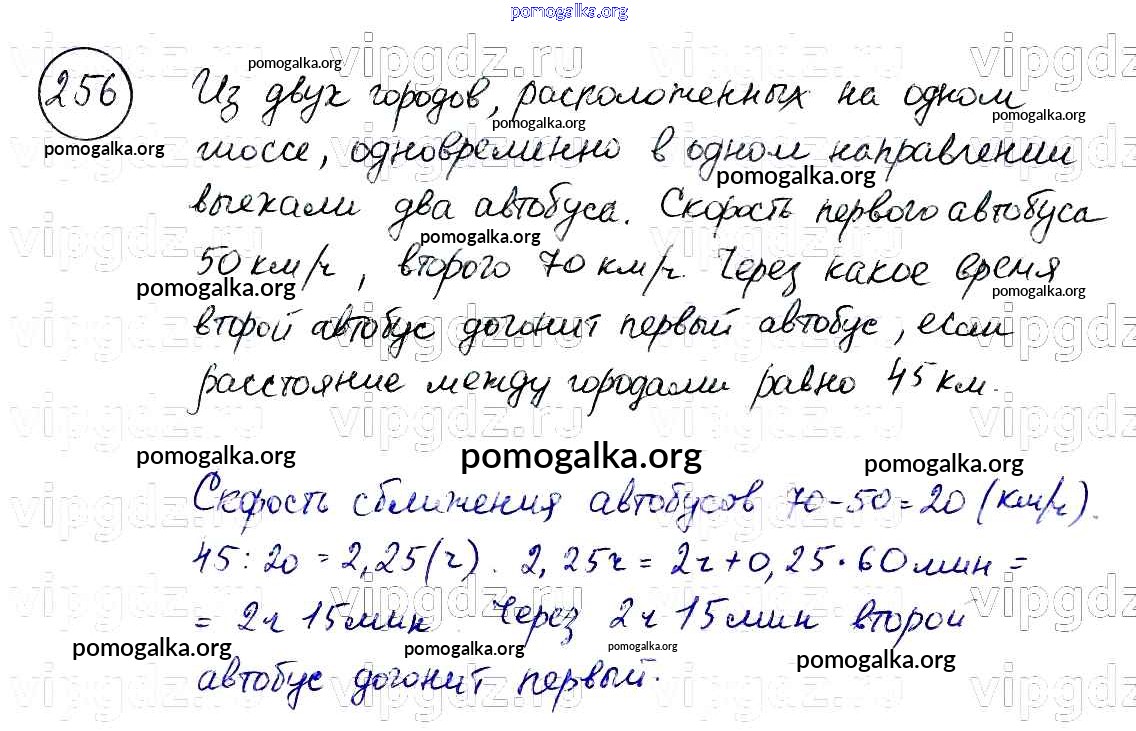 pomogalka.org
256 Из двух городов, расположенных на одном
шоссе, одновременно в одном направлении
выехали два автобуса. Скорость первого автобуса
50 км/ч, второго 70 км/ч. Через какое время
второй автобус догонит первый автобус, если
расстояние между городами равно 45 км.
Скорость сближения автобусов 70-50=20 (км/ч).
45:20=2,25(ч). 2,25ч=2ч+0,25·60мин=
=2ч 15мин. Через 2ч 15мин второй
автобус догонит первый.